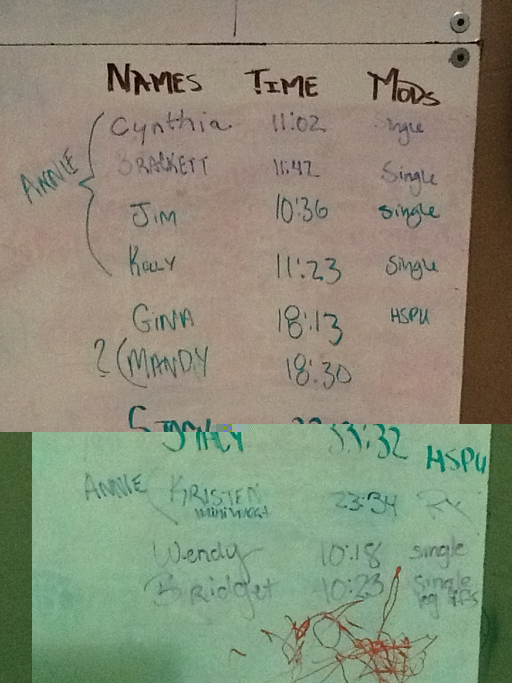 NAMES TIME MODS
Cynthia 11:02 Single
BRACKETT 11:42 Single
ANNIE
Jim 10:36 single
Kelly 11:23 Single
GINA 18:13 HSPU
? (MANDY 18:30
HSPU
ANNIE KRISTEN 23:34
Wendy 10:18 single
Bridget 10:23 single